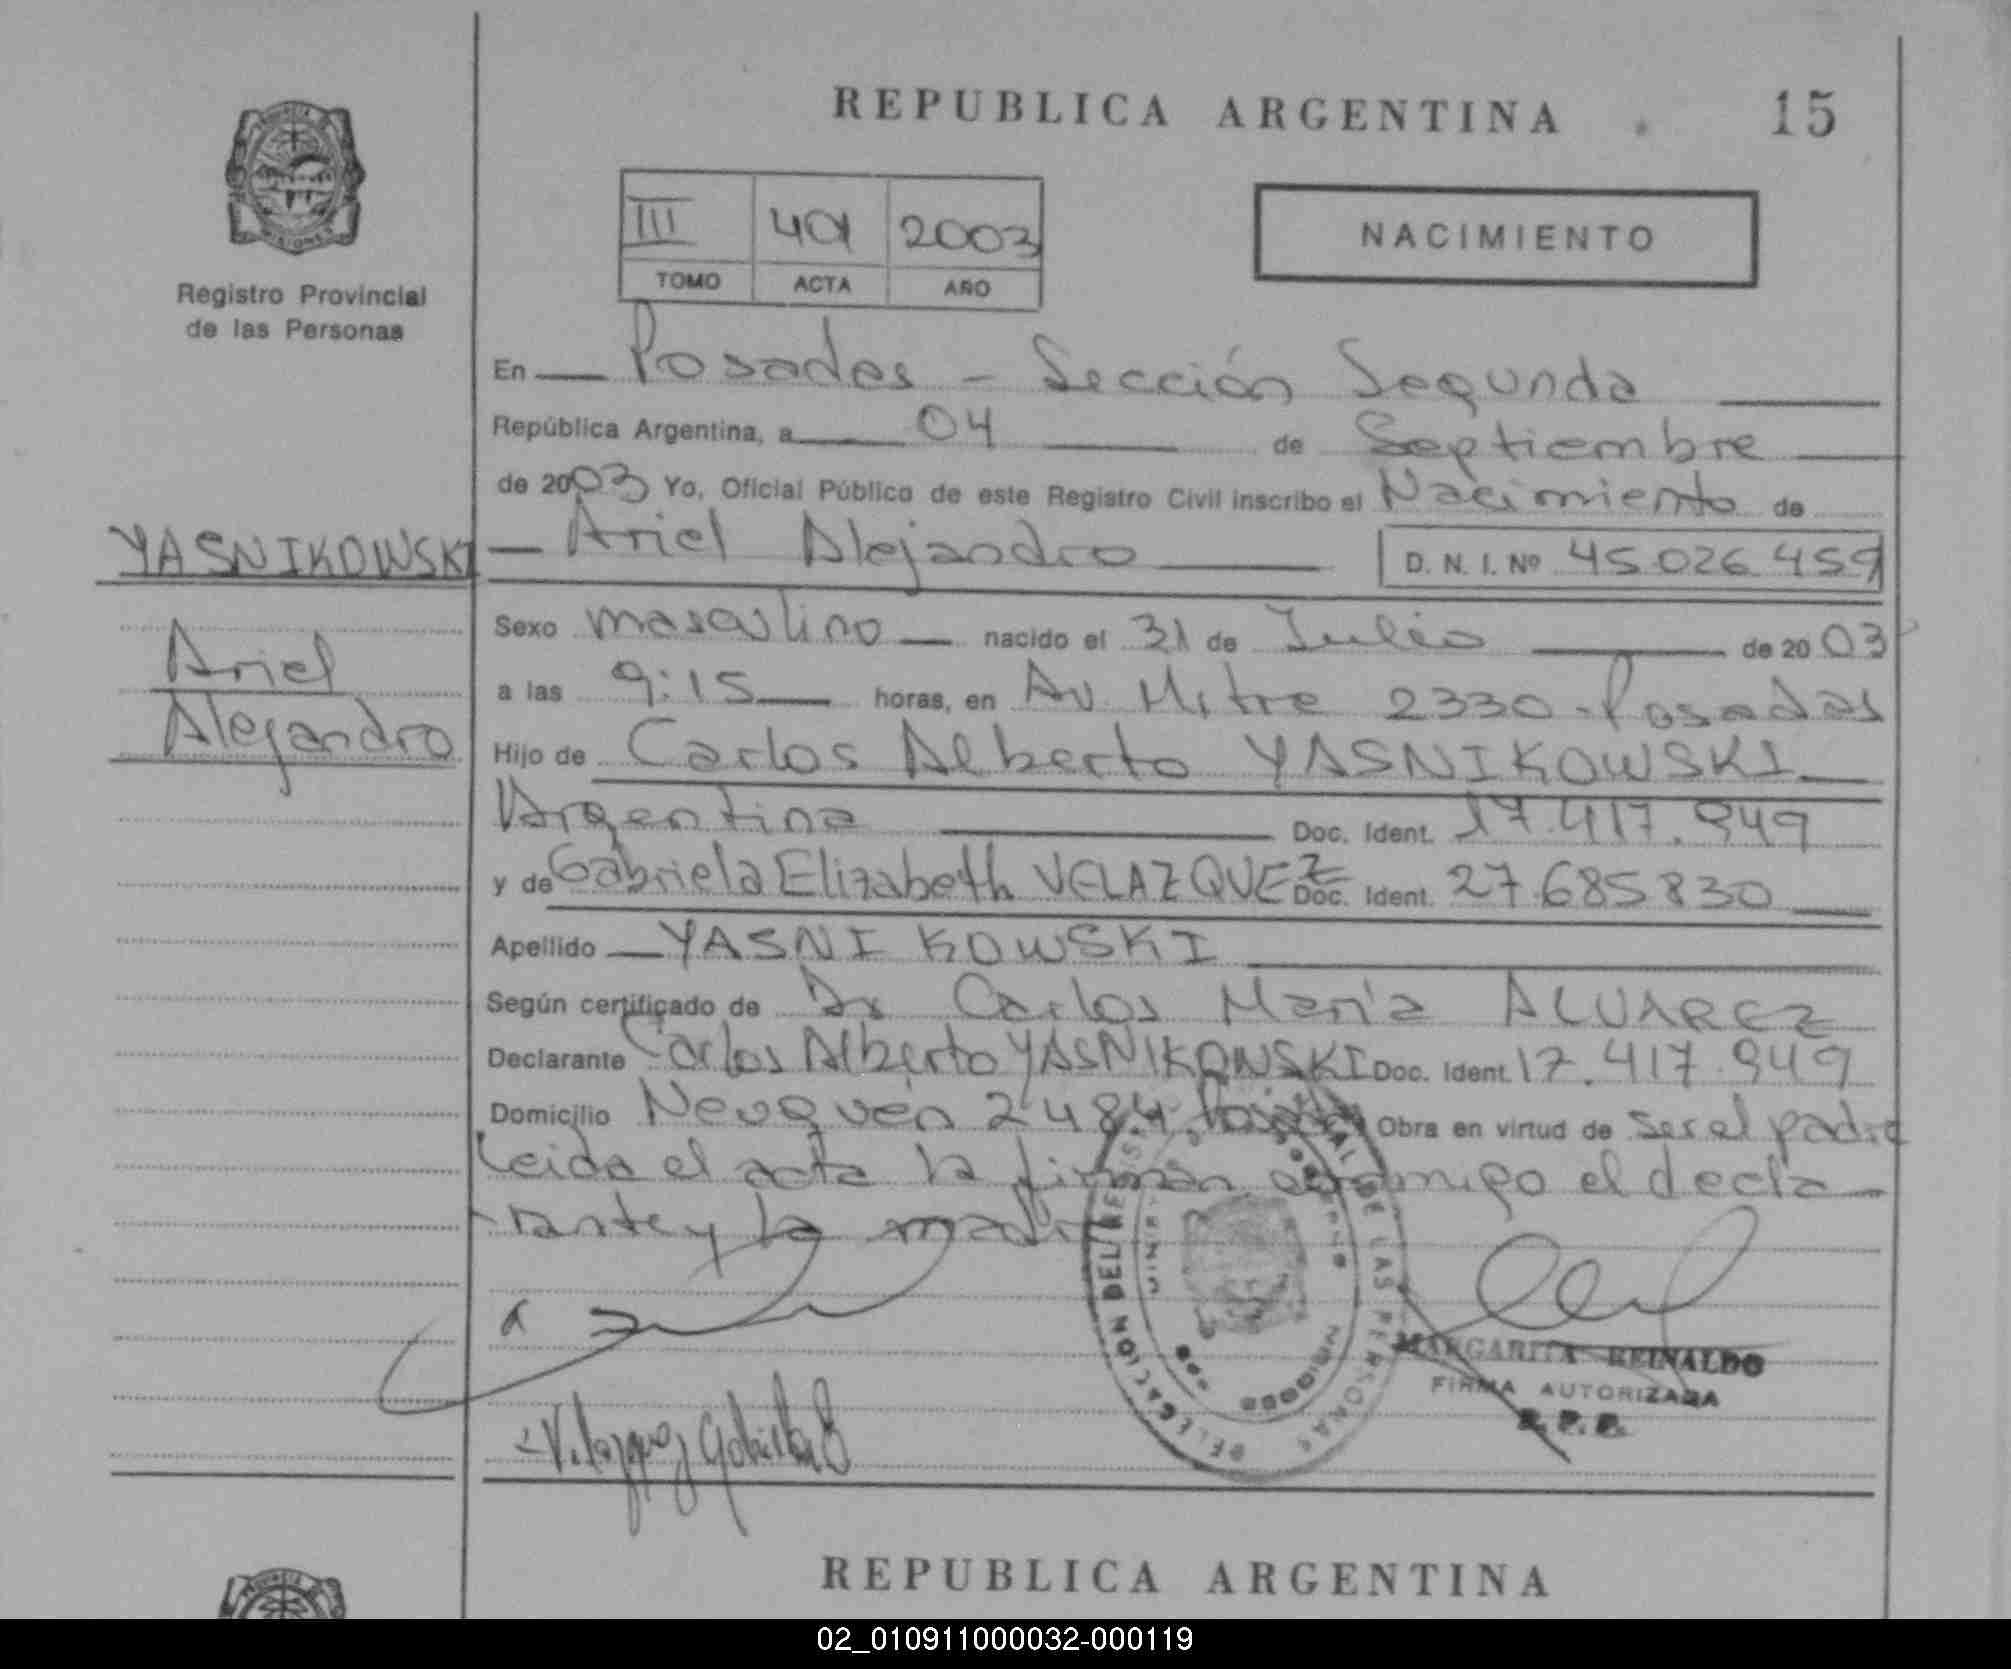 REPUBLICA ARGENTINA
15
PROVINCIA
MISIONES
Registro Provincial
de las Personas
III 401 2003
TOMO ACTA AÑO
NACIMIENTO
En Posadas - Sección Segunda
República Argentina, a 04 de Septiembre
de 2003 Yo, Oficial Público de este Registro Civil inscribo el Nacimiento de
YASNIKOWSKI
Ariel Alejandro D. N. I. Nº 45.026.459
Ariel
Alejandro
Sexo masculino nacido el 31 de Julio de 2003
a las 9:15 horas, en Av. Mitre 2330 - Posadas
Hijo de Carlos Alberto YASNIKOWSKI
Argentina Doc. Ident. 17.417.949
y de Gabriela Elizabeth VELAZQUEZ Doc. Ident. 27.685.830
Apellido YASNIKOWSKI
Según certificado de Dr Carlos María ALVAREZ
Declarante Carlos Alberto YASNIKOWSKI Doc. Ident. 17.417.949
Domicilio Neuquén 2484 Posadas Obra en virtud de ser el padre
Leida el acta la firman conmigo el decla-
-rante y la madre
DELEGACION DEL REGISTRO PROVINCIAL DE LAS PERSONAS
MARGARITA REINALDO
FIRMA AUTORIZADA
R. P. P.
Velazquez Gabriela E
REPUBLICA ARGENTINA
02_010911000032-000119